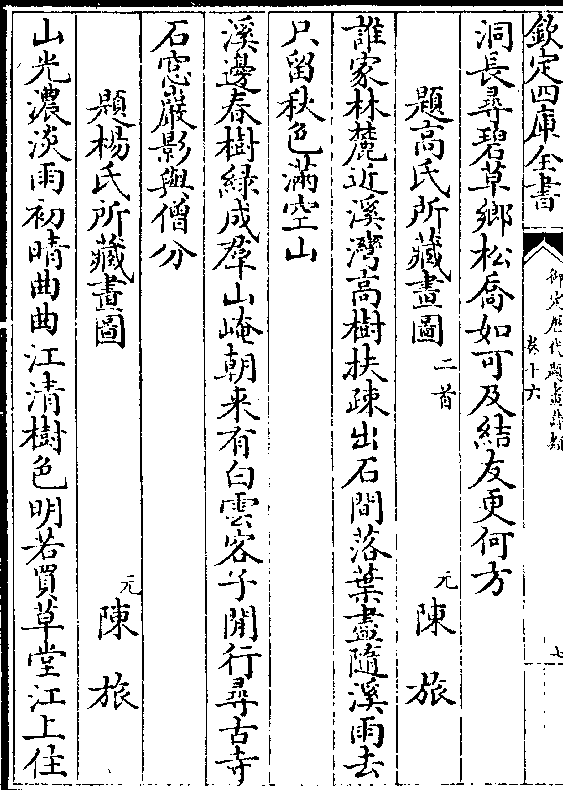 欽定四庫全書
御定歷代題畫詩類
卷十六
七
洞長尋碧草鄉松喬如可及結友更何方
題高氏所藏畫圖二首 元陳旅
誰家林麓近溪灣高樹扶疎出石間落葉盡隨溪雨去
只留秋色滿空山
溪邊春樹綠成羣山崦朝來有白雲客子閒行尋古寺
石窓巖影與僧分
題楊氏所藏畫圖 元陳旅
山光濃淡雨初晴曲曲江清樹色明若買草堂江上住